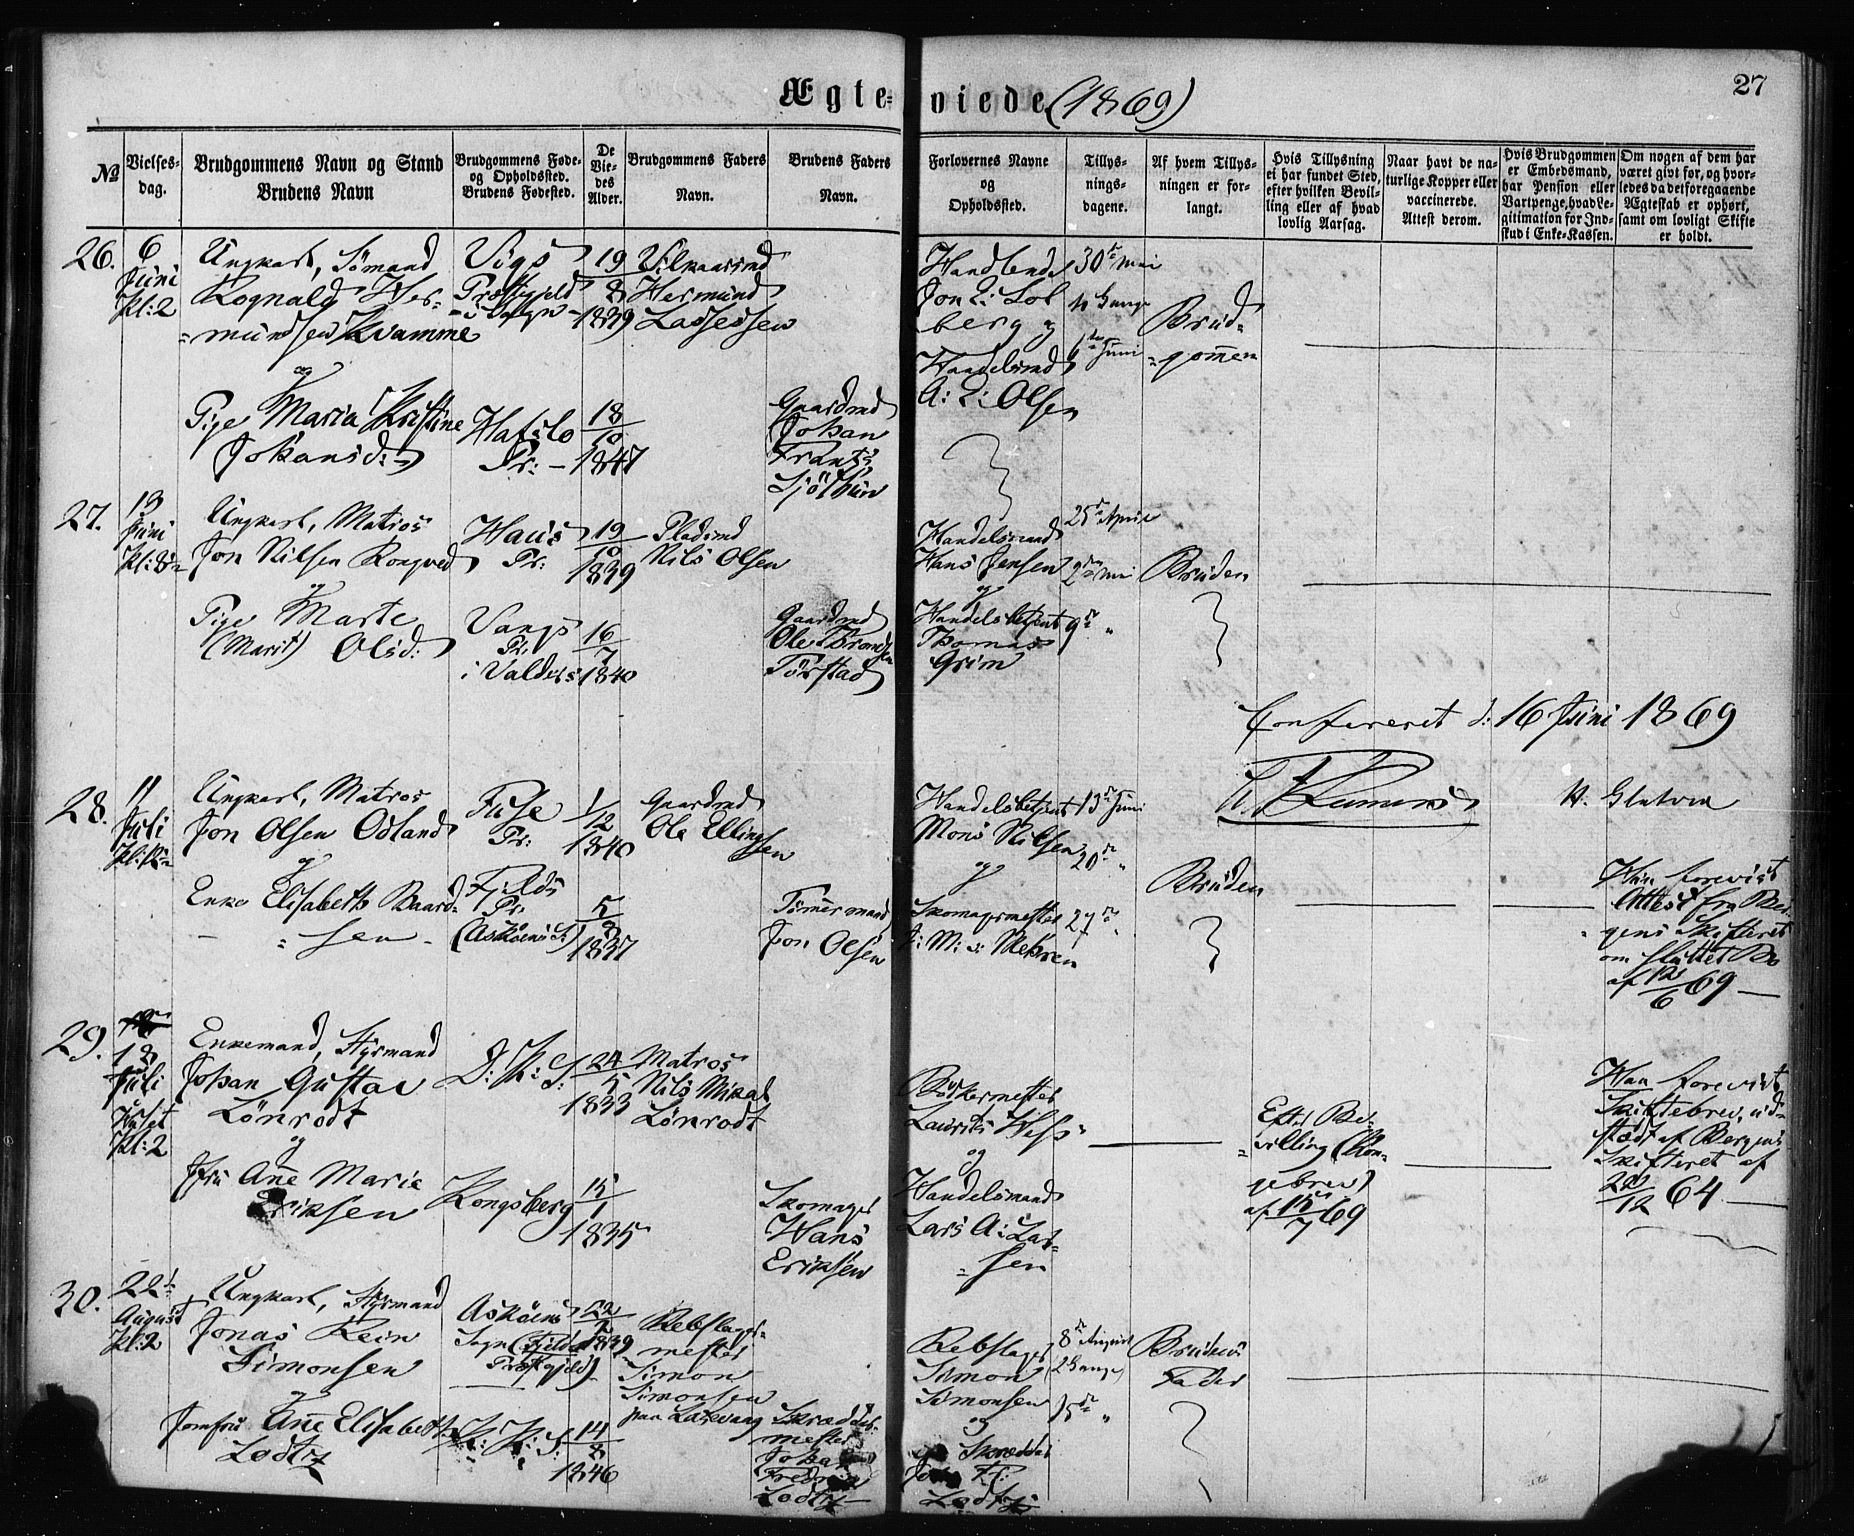 Ægteviede (1869)
27
No
Vielses-
dag.
Brudgommens Navn og Stand
Brudens Navn
Brudgommens Føde-
og Opholdssted.
Brudens Fødested.
De
Vie-
des
Alder.
Brudgommens Faders
Navn.
Brudens Faders
Navn.
Forlovernes Navne
og
Opholdssted.
Tillys-
nings-
dagene.
Af hvem Tillys-
ningen er for-
langt.
Hvis Tillysning
ei har fundet Sted,
efter hvilken Bevil-
ling eller af hvad
lovlig Aarsag.
Naar havt de na-
turlige Kopper eller
vaccinerede.
Attest derom.
Hvis Brudgommen
er Embedsmand,
har Pension eller
Vartpenge, hvad Le-
gitimation for Ind-
skud i Enke-Kassen.
Om nogen af dem har
været givt før, og hvor-
ledes da det foregaaende
Ægteskab er ophørt,
samt om lovligt Skifte
er holdt.
26.
6
Juni
Kl: 2
Ungkarl, Sømand
Rognald Her-
=mundsen Kvamme
og
Pige Maria Kristine
Johansd:
Vigs
Præstgjeld
Hafslo
Pr: -
19
8
1839
18
10
1847
Hermund
Lassessen
Gaardmd
Johan
Frants
Sjøthun
Jon L: Lol
berg og
Handelsmd
A: L: Olsen
30te Mai
6te Juni
Brud=
=gommen
27.
13
Juni
Kl: 8
Ungkarl, Matros
Jon Nilsen Rongved
og
Pige Marte
(Marit) Olsd:
Haus
Pr:
Vangs
Pr.
i Valders
19
10
1839
16
7
1840
Pladsmd
Nils Olsen
Gaardmd
Ole Trond
sen
Tørstad
Handelsmand
Hans Jensen
og
Handelsbetjent
Thomas
Grim
25de April
2den Mai
9de "
Bruden
Confereret d: 16 Juni 1869
28.
11
Juli
Ungkarl, Matros
Jon Olsen Odland
og
Enke Elisabeth Baard-
= sen -
Fuse
Pr:
Fjelds
Pr.
(Askøens S:)
1
12
1840
5
3
1837
Gaardmd
Ole Elling
sen
Tømermand
Jon Olsen
Handelsbetjent
Mons Nilsen
og
Skomagermester
13de Juni
20de "
27de "
Bruden
Hun forevist
Attest fra Ber-
gens Skifteret
om sluttet Bo
af 12/6 69
29.
13
Juli
Huset
Kl: 2
Enkemand, Styrmand
Johan Gustav
Lønrodt
og
Jfru Ane Marie
Eriksen
D: K: S:
Kongsberg
24
5
1833
15
1
1835
Matros
Nils Mikal
Lønrodt
Skomager
Hans
Eriksen
Bødkermester
Laurits Wess
og
Handelsmand
Lars A: Lar=
= sen
Efter Be-
=villing (Kon-
gebrev)
af 15/7 69
Han forevist
Skiftebrev, ud-
stædt af Bergens
Skifteret af
22/12 64
30.
22
August
Kl: 2
Ungkarl, Styrmand
Jonas Rein
Simonsen
og
Jomfru Ane Elisabeth
Lodtz
Askøens
Sogn (Fjelds
Præstgjeld)
K: K: S:
22
1839
14
8
1846
Rebslager-
mester
Simon
Simonsen
paa Laksevaag
Skrædder-
mester
Johan
Fredrik
Lodtz
Rebslager
Simon
Simonsen
og
Skrædder
Lodtz
8de August
(2 Gange)
15de "
Brudens
Fader